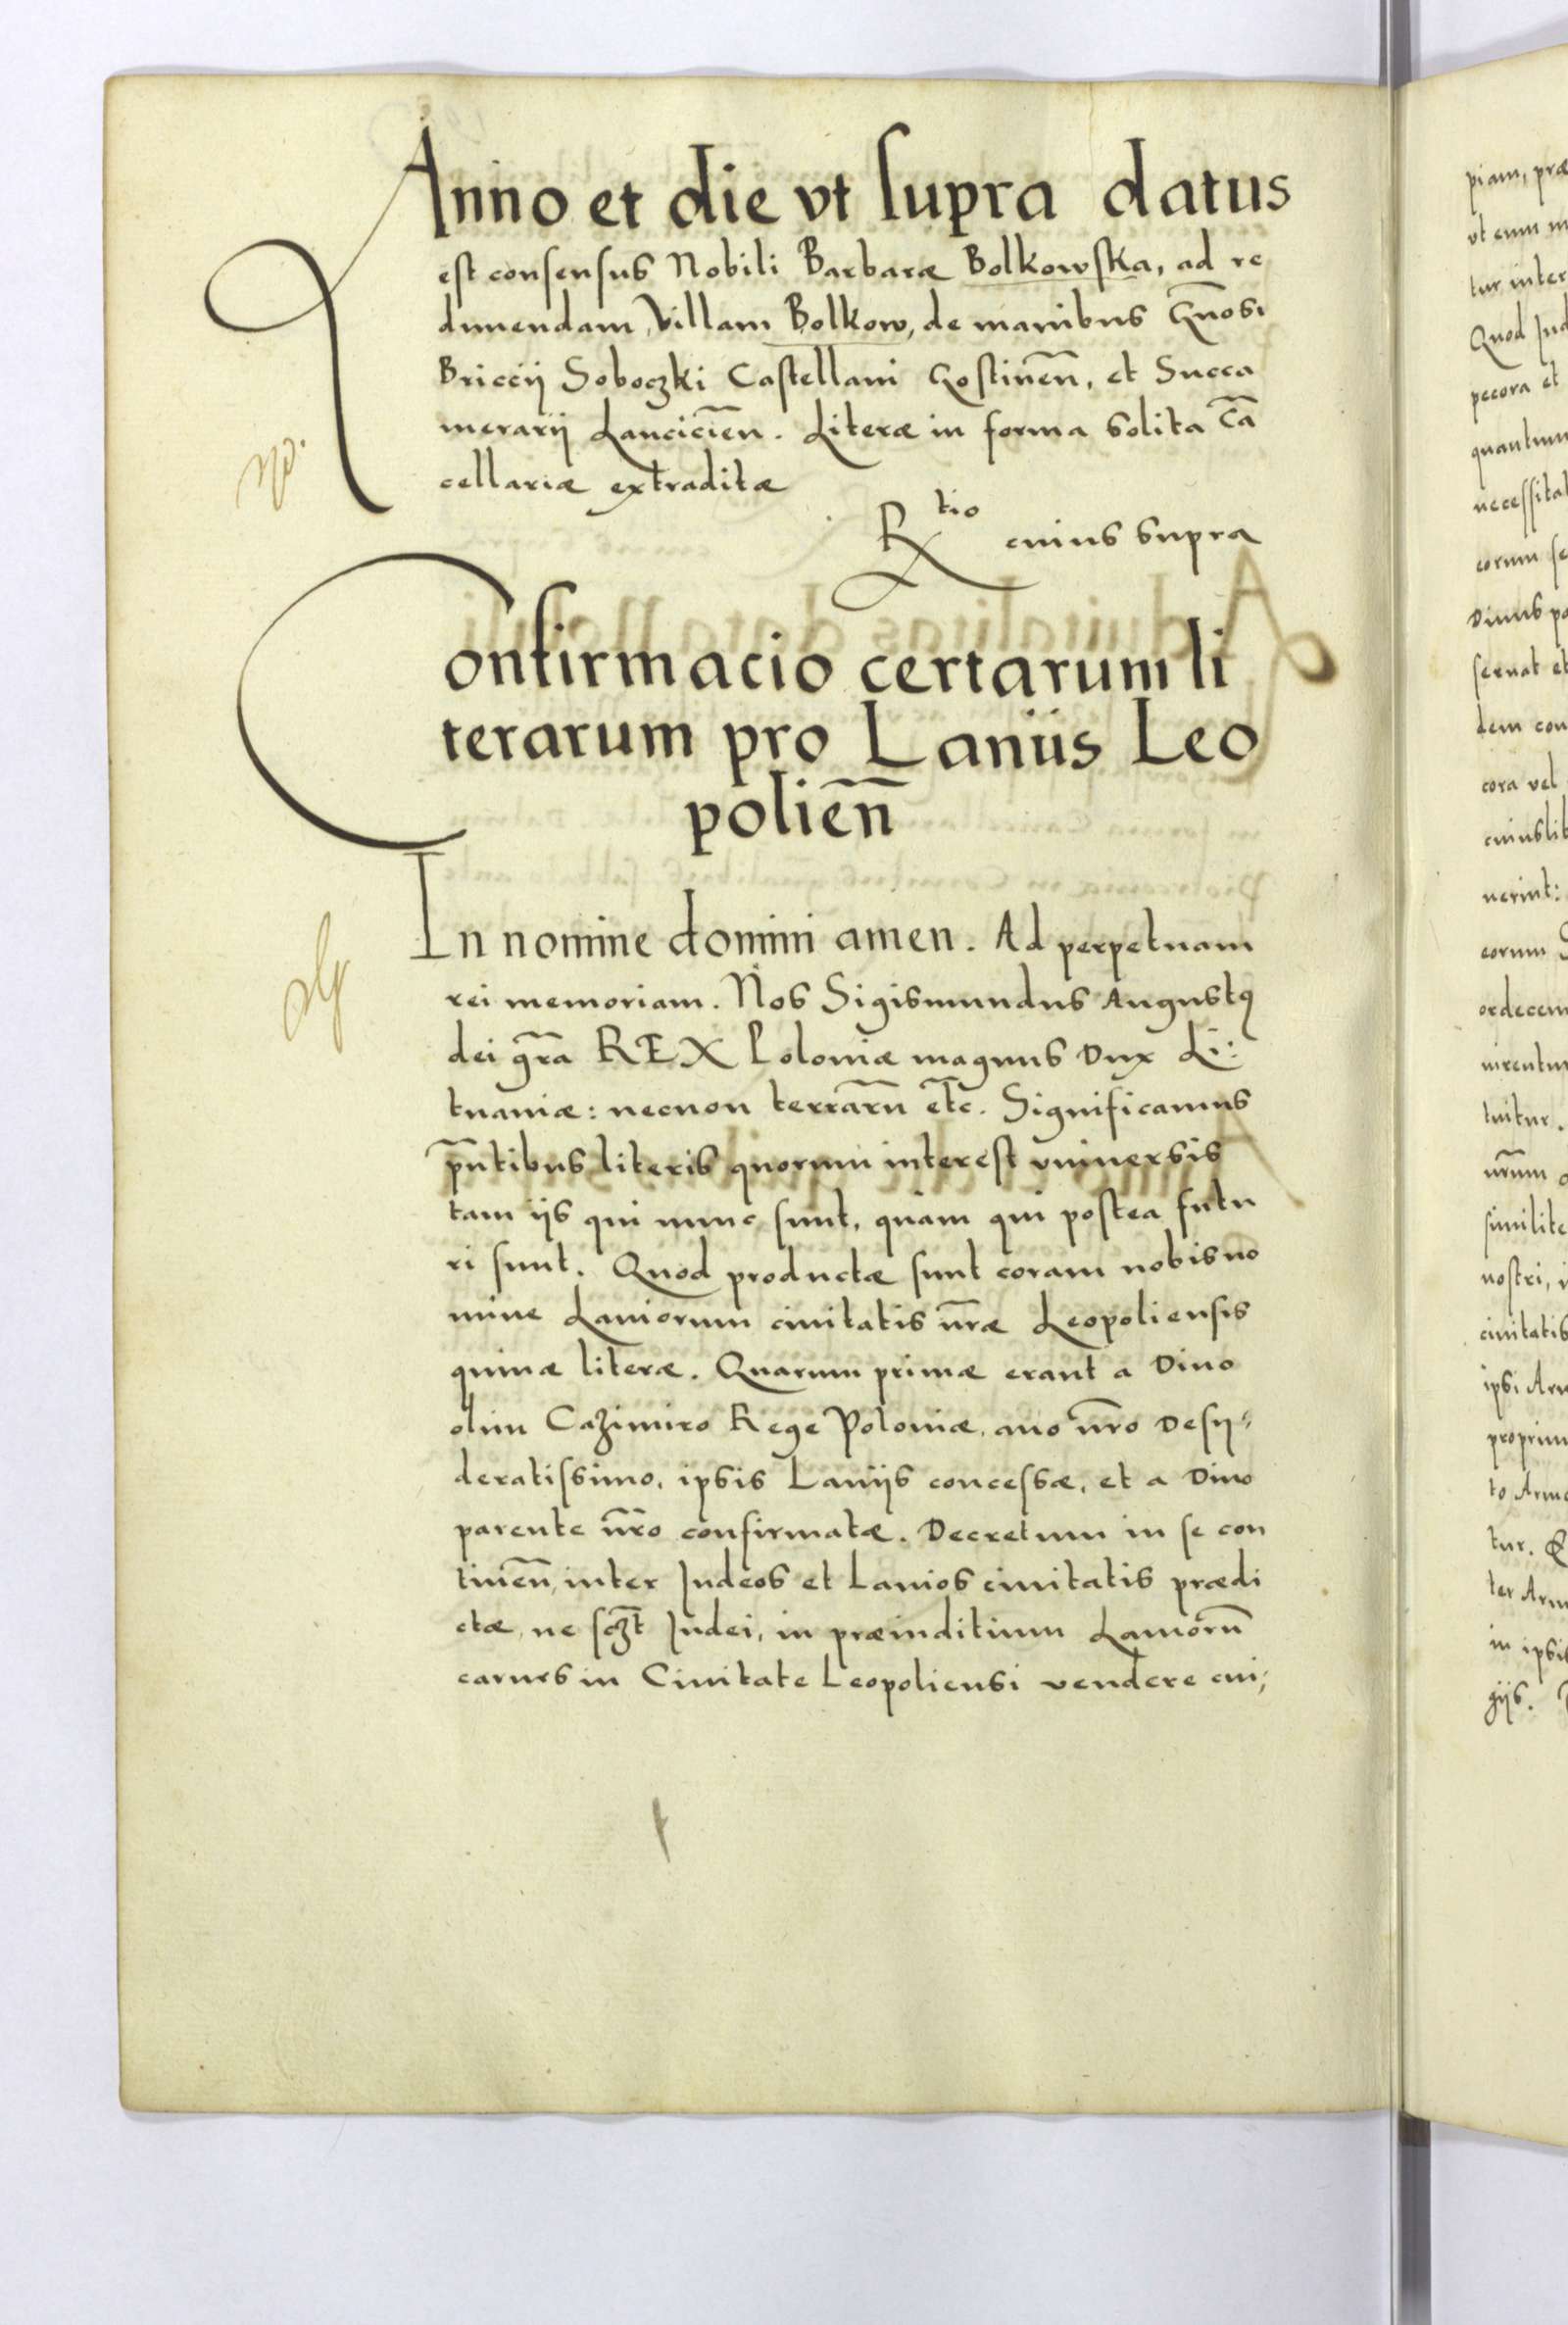 Anno et die vt supra datus
est consensus Nobili Barbaræ Bolkowska, ad re
dimendam Villam Bolkow, de manibus Gn̄osi
Briccÿ Soboczki Castellani Gostinen̄, et Succa
merarÿ Lancicien̄. Literæ in forma solita Cā
cellariæ extraditæ
Rtio cuius supra
Confirmacio certarum li
terarum pro Laniis Leo
polien̄
In nomine domini amen. Ad perpetuam
rei memoriam. Nos Sigismundus Augustꝰ
dei gr̄a REX Poloniæ magnus Dux Li:
tuaniæ: necnon terrarū etc̄. Significamus
pn̄tibus literis quorum interest vniuersis
tam ijs qui nunc sunt, quam qui postea futu
ri sunt. Quod productæ sunt coram nobis no
mine Laniorum ciuitatis nr̄æ Leopoliensis
quinæ literæ. Quarum primæ erant a Diuo
olim Cazimiro Rege Poloniæ, auo nr̄o Desÿ-
deratissimo, ipsis Lanijs concessæ, et a Diuo
parente nr̄o confirmatæ. Decretum in se con
tinen̄, inter Judeos et Lanios ciuitatis prædi
ctæ, ne scʒt̄ Judei, in præiuditium Laniorū
carnes in Ciuitate Leopoliensi vendere cui;
piam, præ
vt cum
tur inter
Quod Jud
pecora et
quantum
necessitat
eorum se
Diuus pa
seruat et
dem con
cora vel
cuiuslib
uerint:
eorum
ordecem
uirentur
tuitur.
nr̄um
similite
nostri, i
ciuitatis
ipsi Arm
proprium
to Arme
tur.
ter Arm
in ipsis
gijs.